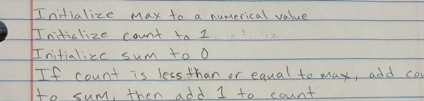 Initialize max to a numerical value
Initialize count to 1
Initialize sum to 0
If count is less than or equal to max, add cou
to sum, then add 1 to count